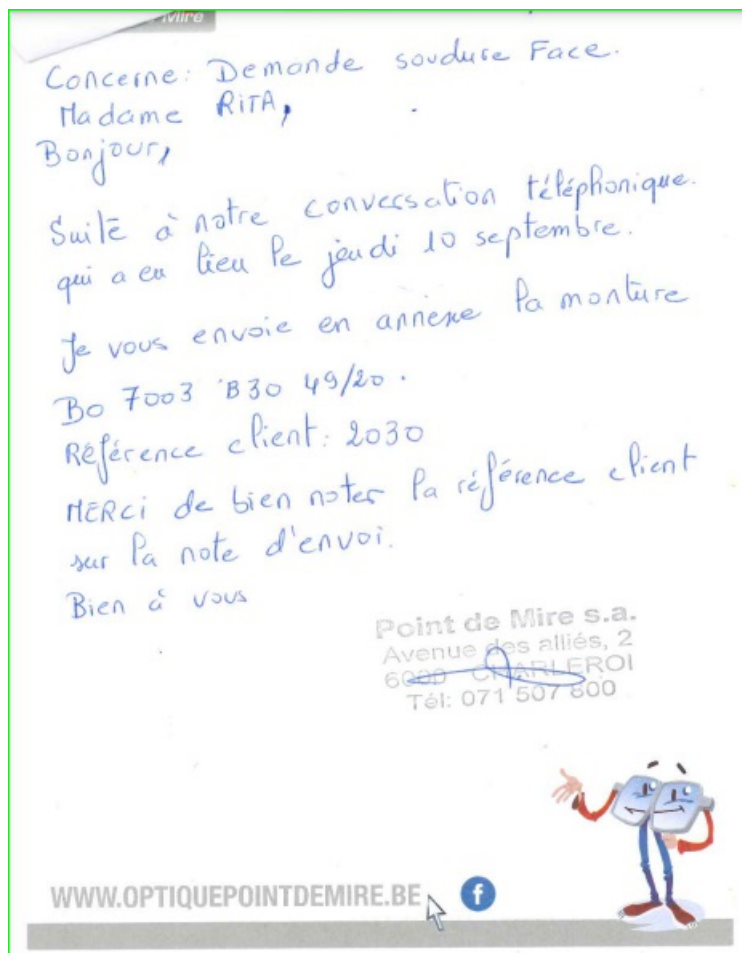 Mire
Concerne: Demande soudure Face.
Madame RITA,
Bonjour,
Suite à notre conversation téléphonique.
qui a eu lieu le jeudi 10 septembre.
Je vous envoie en annexe la monture
BO 7003 B30 49/20.
Référence client: 2030
MERCI de bien noter la référence client
sur la note d'envoi.
Bien à vous
Point de Mire s.a.
Avenue des alliés, 2
6000 CHARLEROI
Tél: 071 507 800
WWW.OPTIQUEPOINTDEMIRE.BE
f